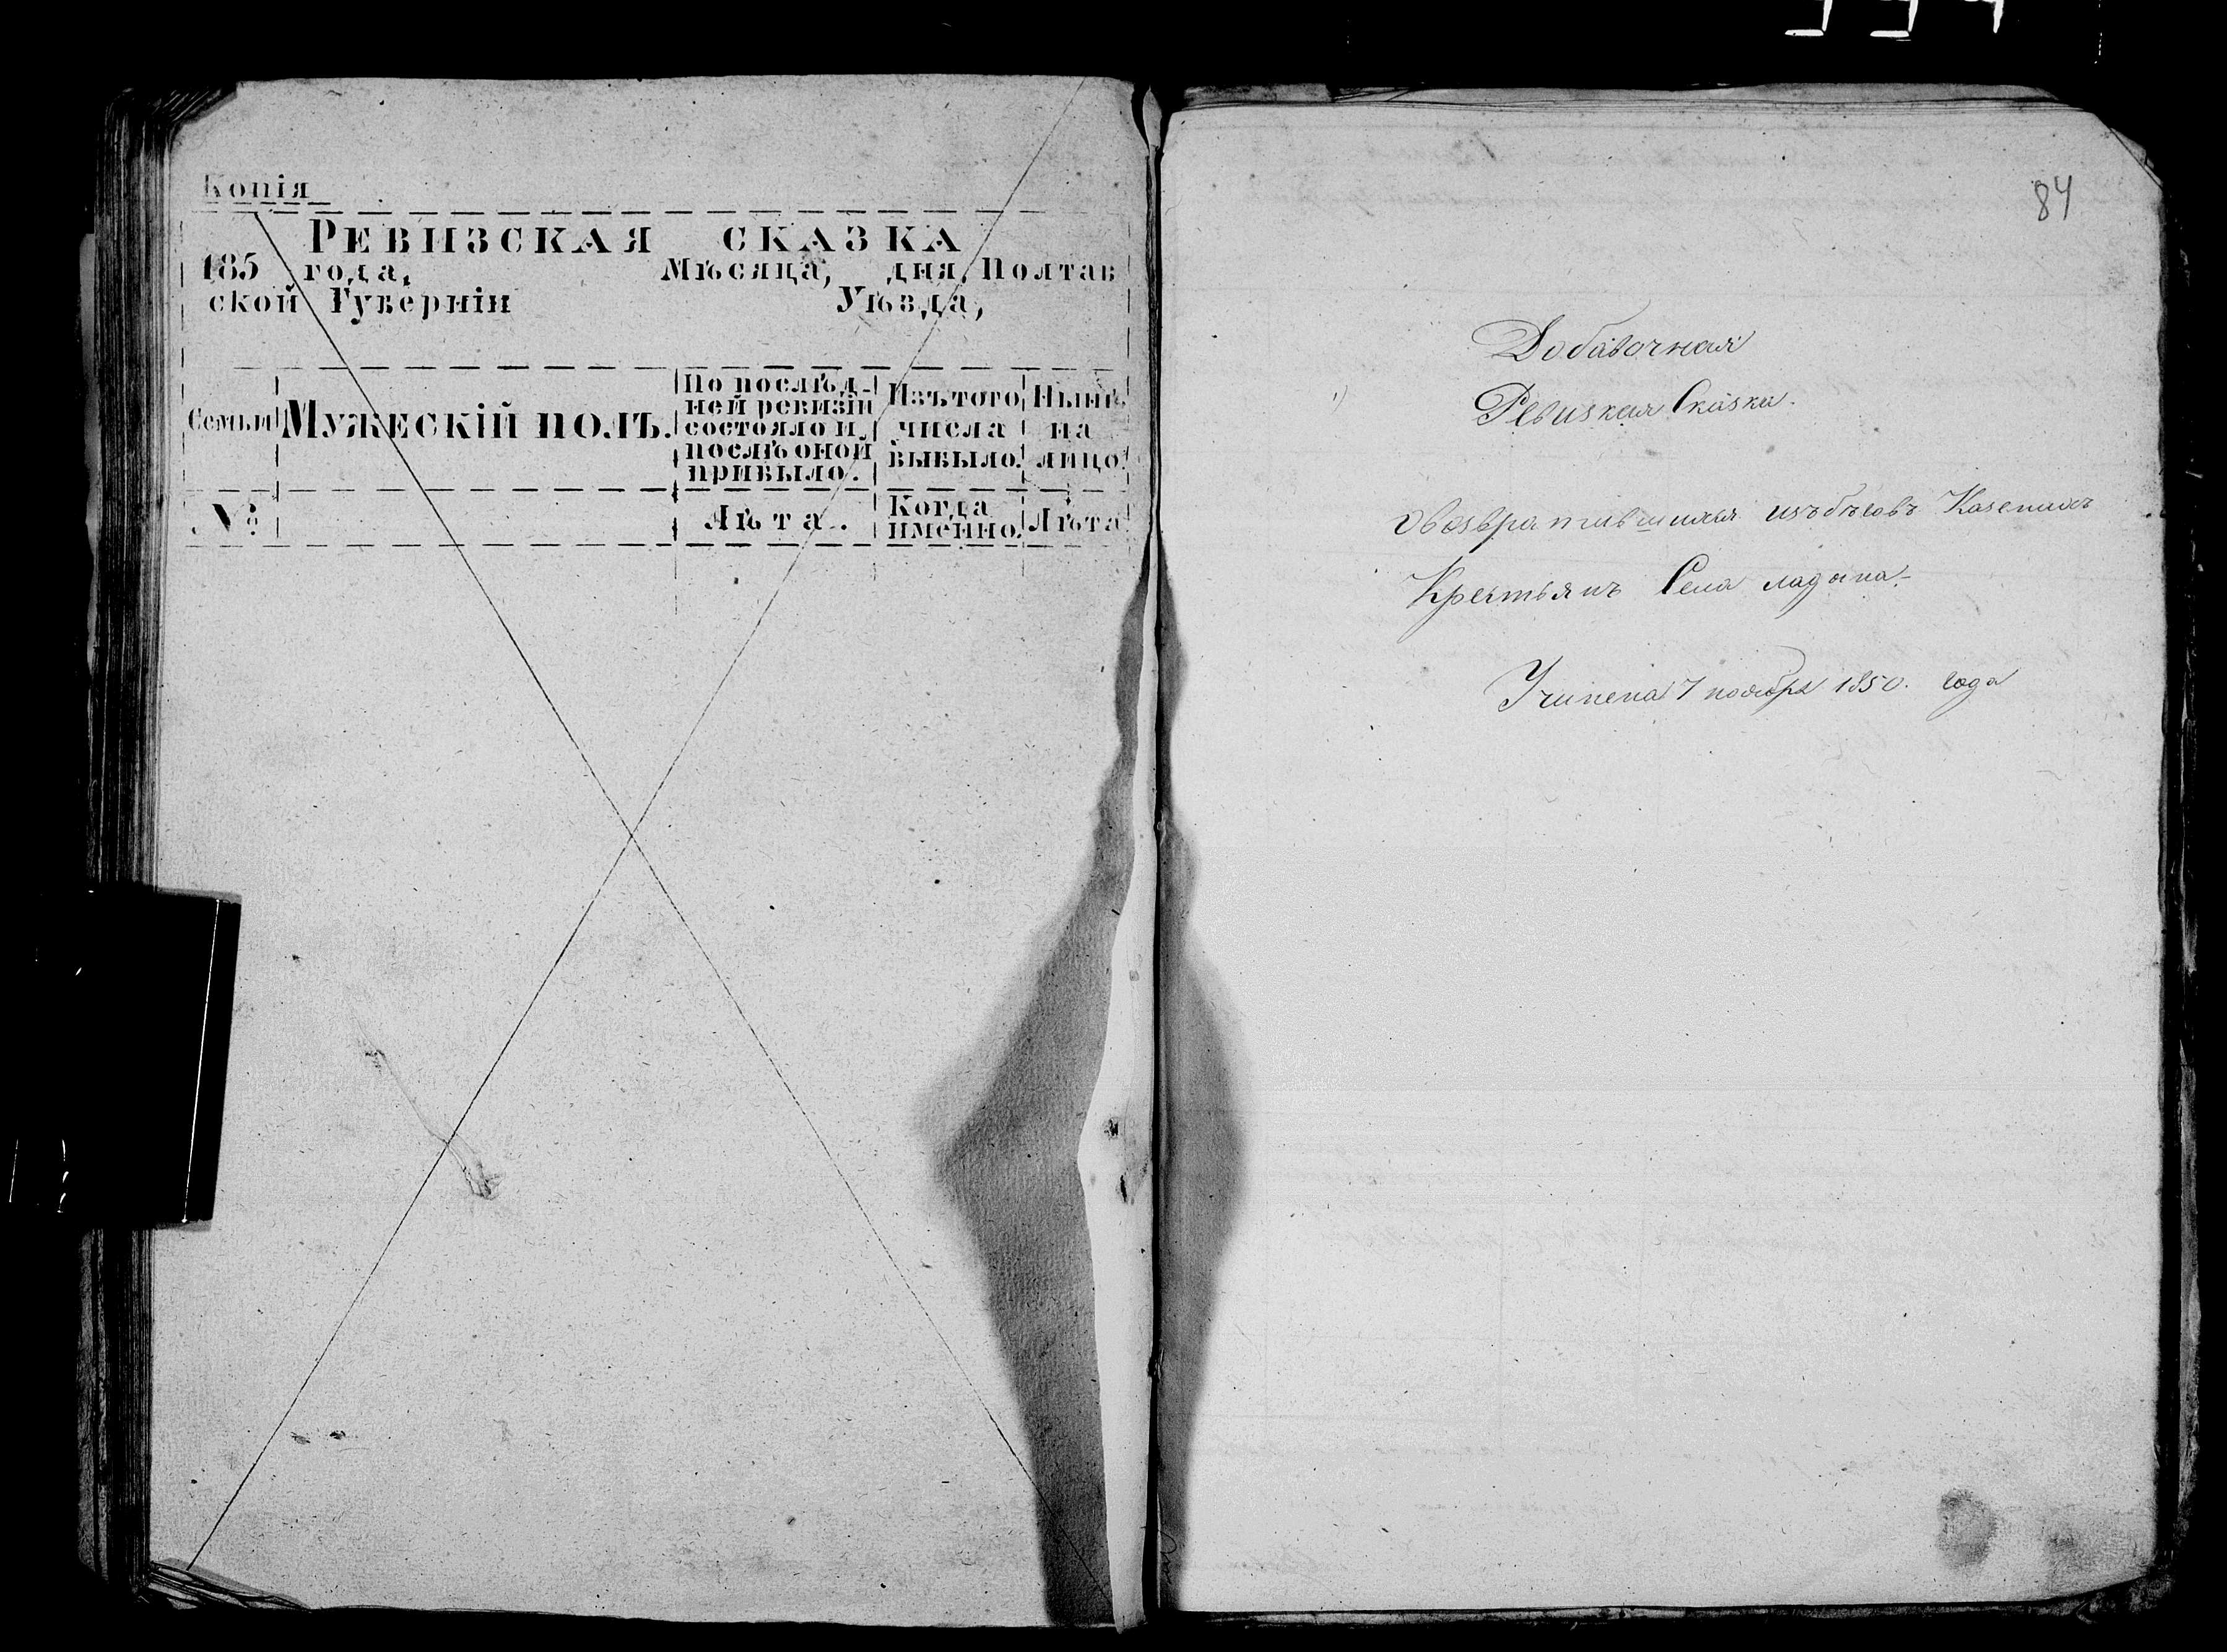 Копія
РЕВИЗСКАЯ СКАЗКА
185 года, Мѣсяца, дня, Полтав
ской Губерніи Уѣзда,
Семьи
МУЖЕСКІЙ ПОЛЪ.
По послѣд-
ней ревизіи
состояло и
послѣ оной
прибыло.
Изъ того
числа
выбыло.
Нынѣ
на
лицо.
№
Лѣта.
Когда
именно.
Лѣта
84
Добавочная
Ревизкая Сказка.
овозвратившихся изъ бѣговъ Казеныхъ
Крестьянъ Села ладана
Учинена 7 ноября 1850. года